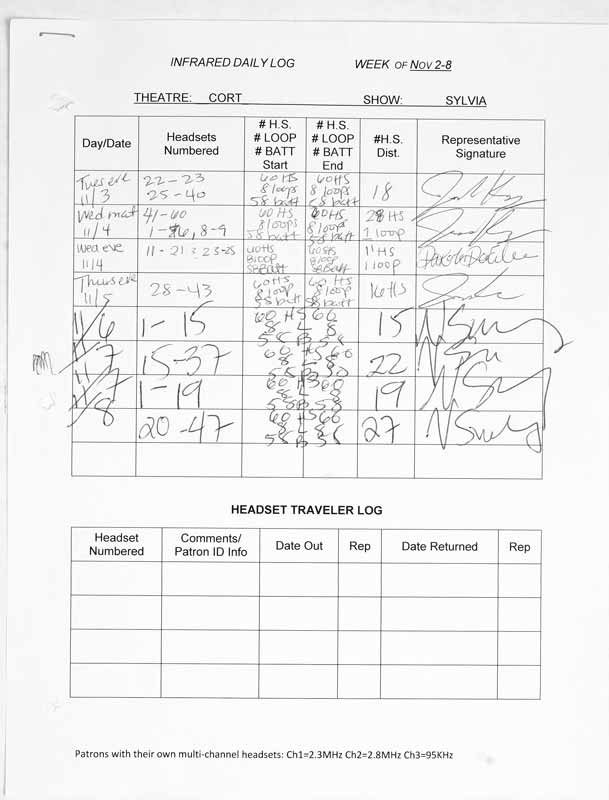 INFRARED DAILY LOG WEEK OF NOV 2-8
THEATRE: CORT SHOW: SYLVIA
Day/Date Headsets Numbered # H.S. # LOOP # BATT Start # H.S. # LOOP # BATT End #H.S. Dist. Representative Signature
Tues eve 11/3 22-23 25-40 60HS 8 loops 58 batt 60HS 8 loops 58 batt 18
Wed mat 11/4 41-60 1-6, 8-9 60HS 8 loops 58 batt 60HS 8 loops 58 batt 28 HS 1 loop
Wed eve 11/4 11-21 23-25 60HS 8 loop 58 batt 60HS 8 loop 58 batt 11 HS 1 loop
Thurs eve 11/5 28-43 60HS 8 loop 58 batt 60 HS 8 loop 58 batt 16 HS
11/6 1-15 60 HS 60 8 L 8 58 B 58 15
11/7 15-37 60 HS 60 8 L 8 58 B 22
11/7 1-19 60 HS 60 8 L 8 58 B 58 19
11/8 20-47 60 HS 60 8 L 8 58 B 58 27
HEADSET TRAVELER LOG
Headset Numbered Comments/ Patron ID Info Date Out Rep Date Returned Rep
Patrons with their own multi-channel headsets: Ch1=2.3MHz Ch2=2.8MHz Ch3=95KHz